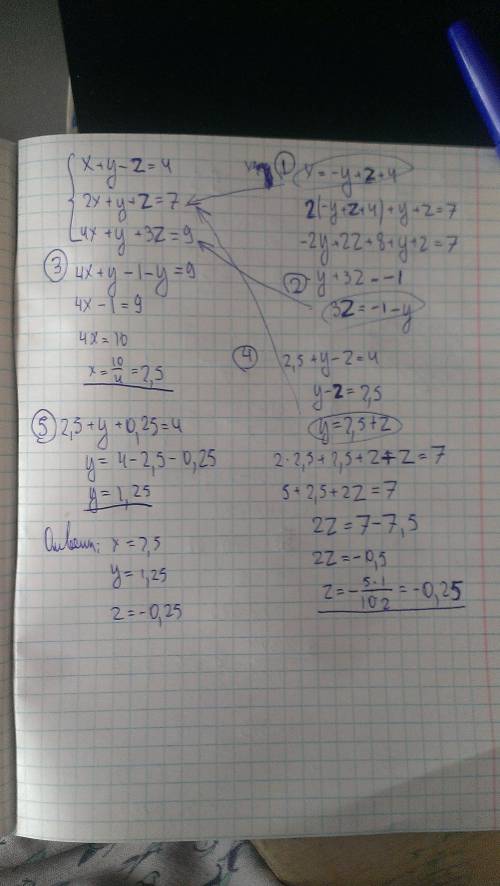 x+y-z=4
2x+y+z=7
4x+y+3z=9
① x=-y+z+4
2(-y+z+4)+y+z=7
-2y+2z+8+y+z=7
② -y+3z=-1
3z=-1-y
③ 4x+y-1-y=9
4x-1=9
4x=10
x=10/4=2,5
④ 2,5+y-z=4
y-z=2,5
y=2,5+z
2·2,5+2,5+z+z=7
5+2,5+2z=7
2z=7-7,5
2z=-0,5
z=-5·1/10·2=-0,25
⑤ 2,5+y+0,25=4
y=4-2,5-0,25
y=1,25
Ответ: x=2,5
y=1,25
z=-0,25